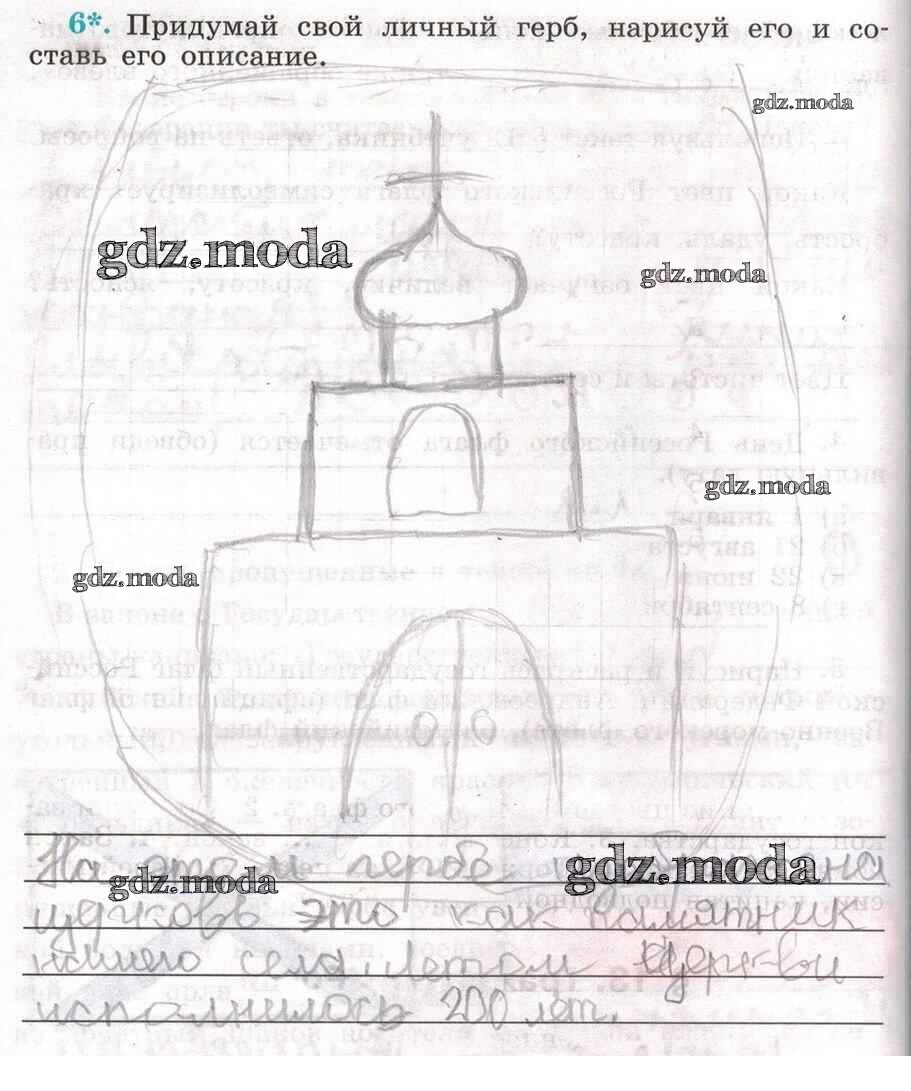 6*. Придумай свой личный герб, нарисуй его и со-
ставь его описание.
gdz.moda
gdz.moda
gdz.moda
gdz.moda
gdz.moda
На этом гербе
gdz.moda
gdz.moda
церковь это как памятник
нашего села, летом церкви
исполнилось 200 лет.